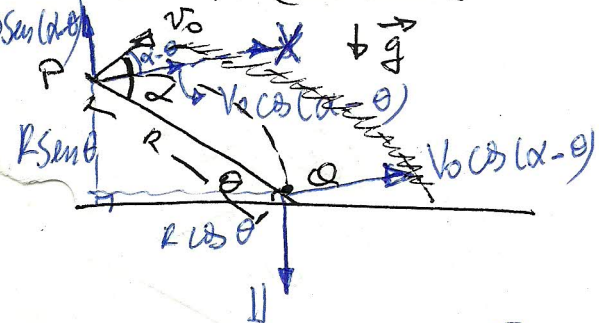 Sen(α-θ)
V₀
g
P
α-θ
α
V₀ cos(α-θ)
R Senθ
R
θ
Q
V₀ cos(α-θ)
R cos θ